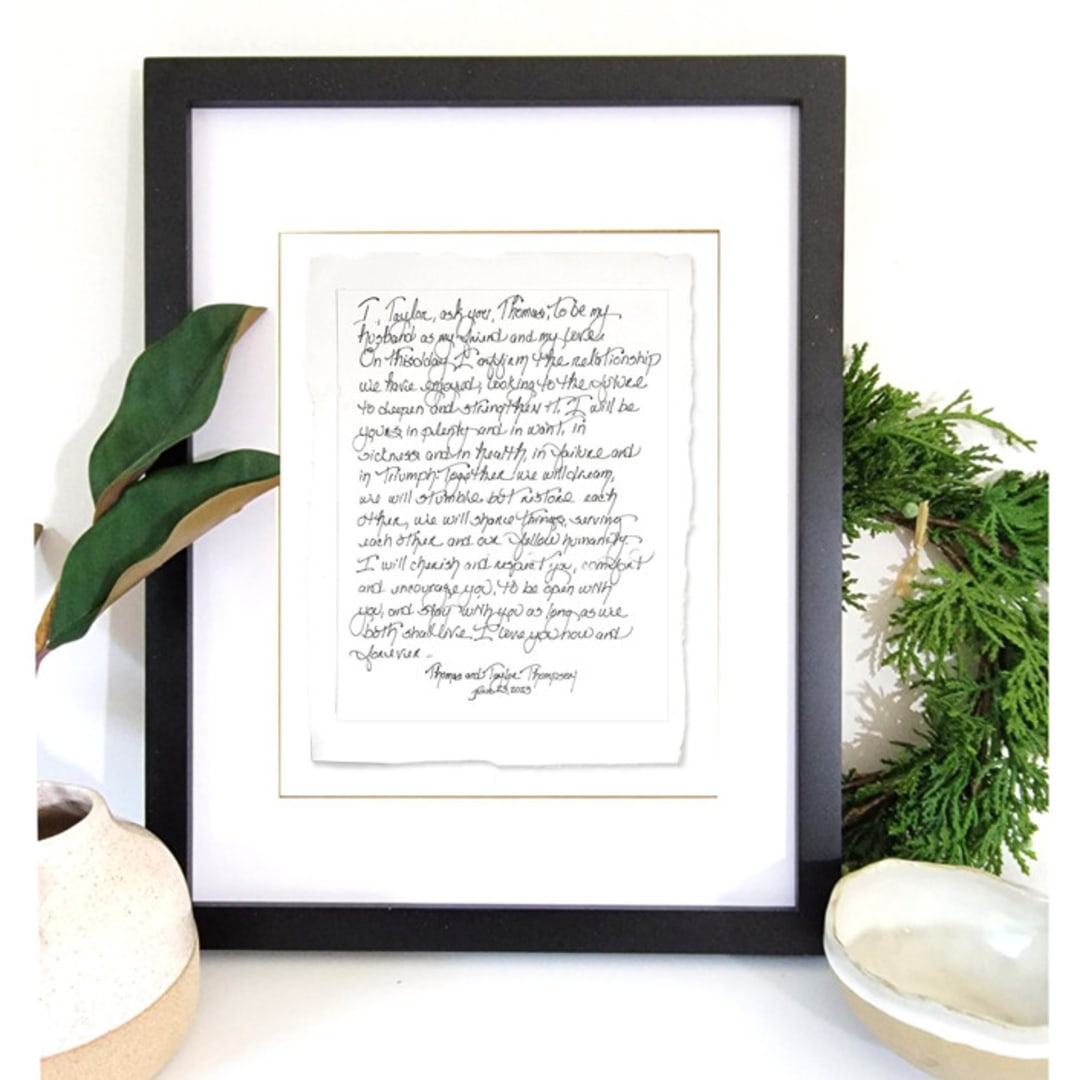 I, Taylor, ask you, Thomas, to be my
husband as my friend and my love.
On this day, I affirm the relationship
we have enjoyed, looking to the future
to deepen and strengthen it. I will be
yours in plenty and in want, in
sickness and in health, in failure and
in triumph. Together we will dream,
we will stumble but restore each
other, we will share things, serving
each other and our fellow humanity.
I will cherish and respect you, comfort
and encourage you, to be open with
you, and stay with you as long as we
both shall live. I love you now and
forever.
Thomas and Taylor Thompson
23, 2023